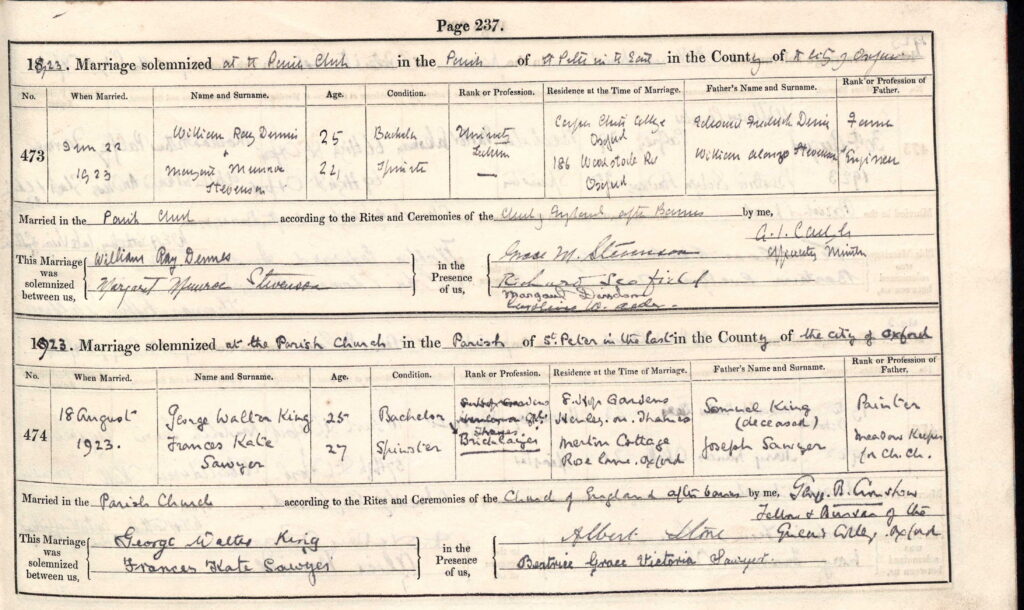 Page 237.
1923. Marriage solemnized at the Parish Church in the Parish of St Peter in the East in the County of the City of Oxford
No. When Married. Name and Surname. Age. Condition. Rank or Profession. Residence at the Time of Marriage. Father's Name and Surname. Rank or Profession of Father.
473
1923
William Ray Dennes
25
Bachelor
University
Corpus Christi College
Oxford
Margaret Munroe
Stevenson
Spinster
—
186 Woodstock Rd
Oxford
William Alonzo Stevenson
Engineer
Married in the Parish Church according to the Rites and Ceremonies of the Church of England after Banns by me,
This Marriage was solemnized between us,
William Ray Dennes
Margaret Munroe Stevenson
in the Presence of us,
Grace M. Stevenson
Richard Scofield
Margaret
1923. Marriage solemnized at the Parish Church in the Parish of St. Peter in the East in the County of the city of Oxford
No. When Married. Name and Surname. Age. Condition. Rank or Profession. Residence at the Time of Marriage. Father's Name and Surname. Rank or Profession of Father.
474
18 August
1923.
George Walter King
25
Bachelor
Bricklayer
Gardens
Henley-on-Thames
Samuel King
(deceased)
Painter
Frances Kate
Sawyer
27
Spinster
Merlin Cottage
Rose Lane. Oxford
Joseph Sawyer
Meadow Keeper
for Ch. Ch.
Married in the Parish Church according to the Rites and Ceremonies of the Church of England after banns by me, George B. Cronshaw
Fellow & Bursar of the
Queen's College, Oxford
This Marriage was solemnized between us,
George Walter King
Frances Kate Sawyer
in the Presence of us,
Albert Stone
Beatrice Grace Victoria Sawyer